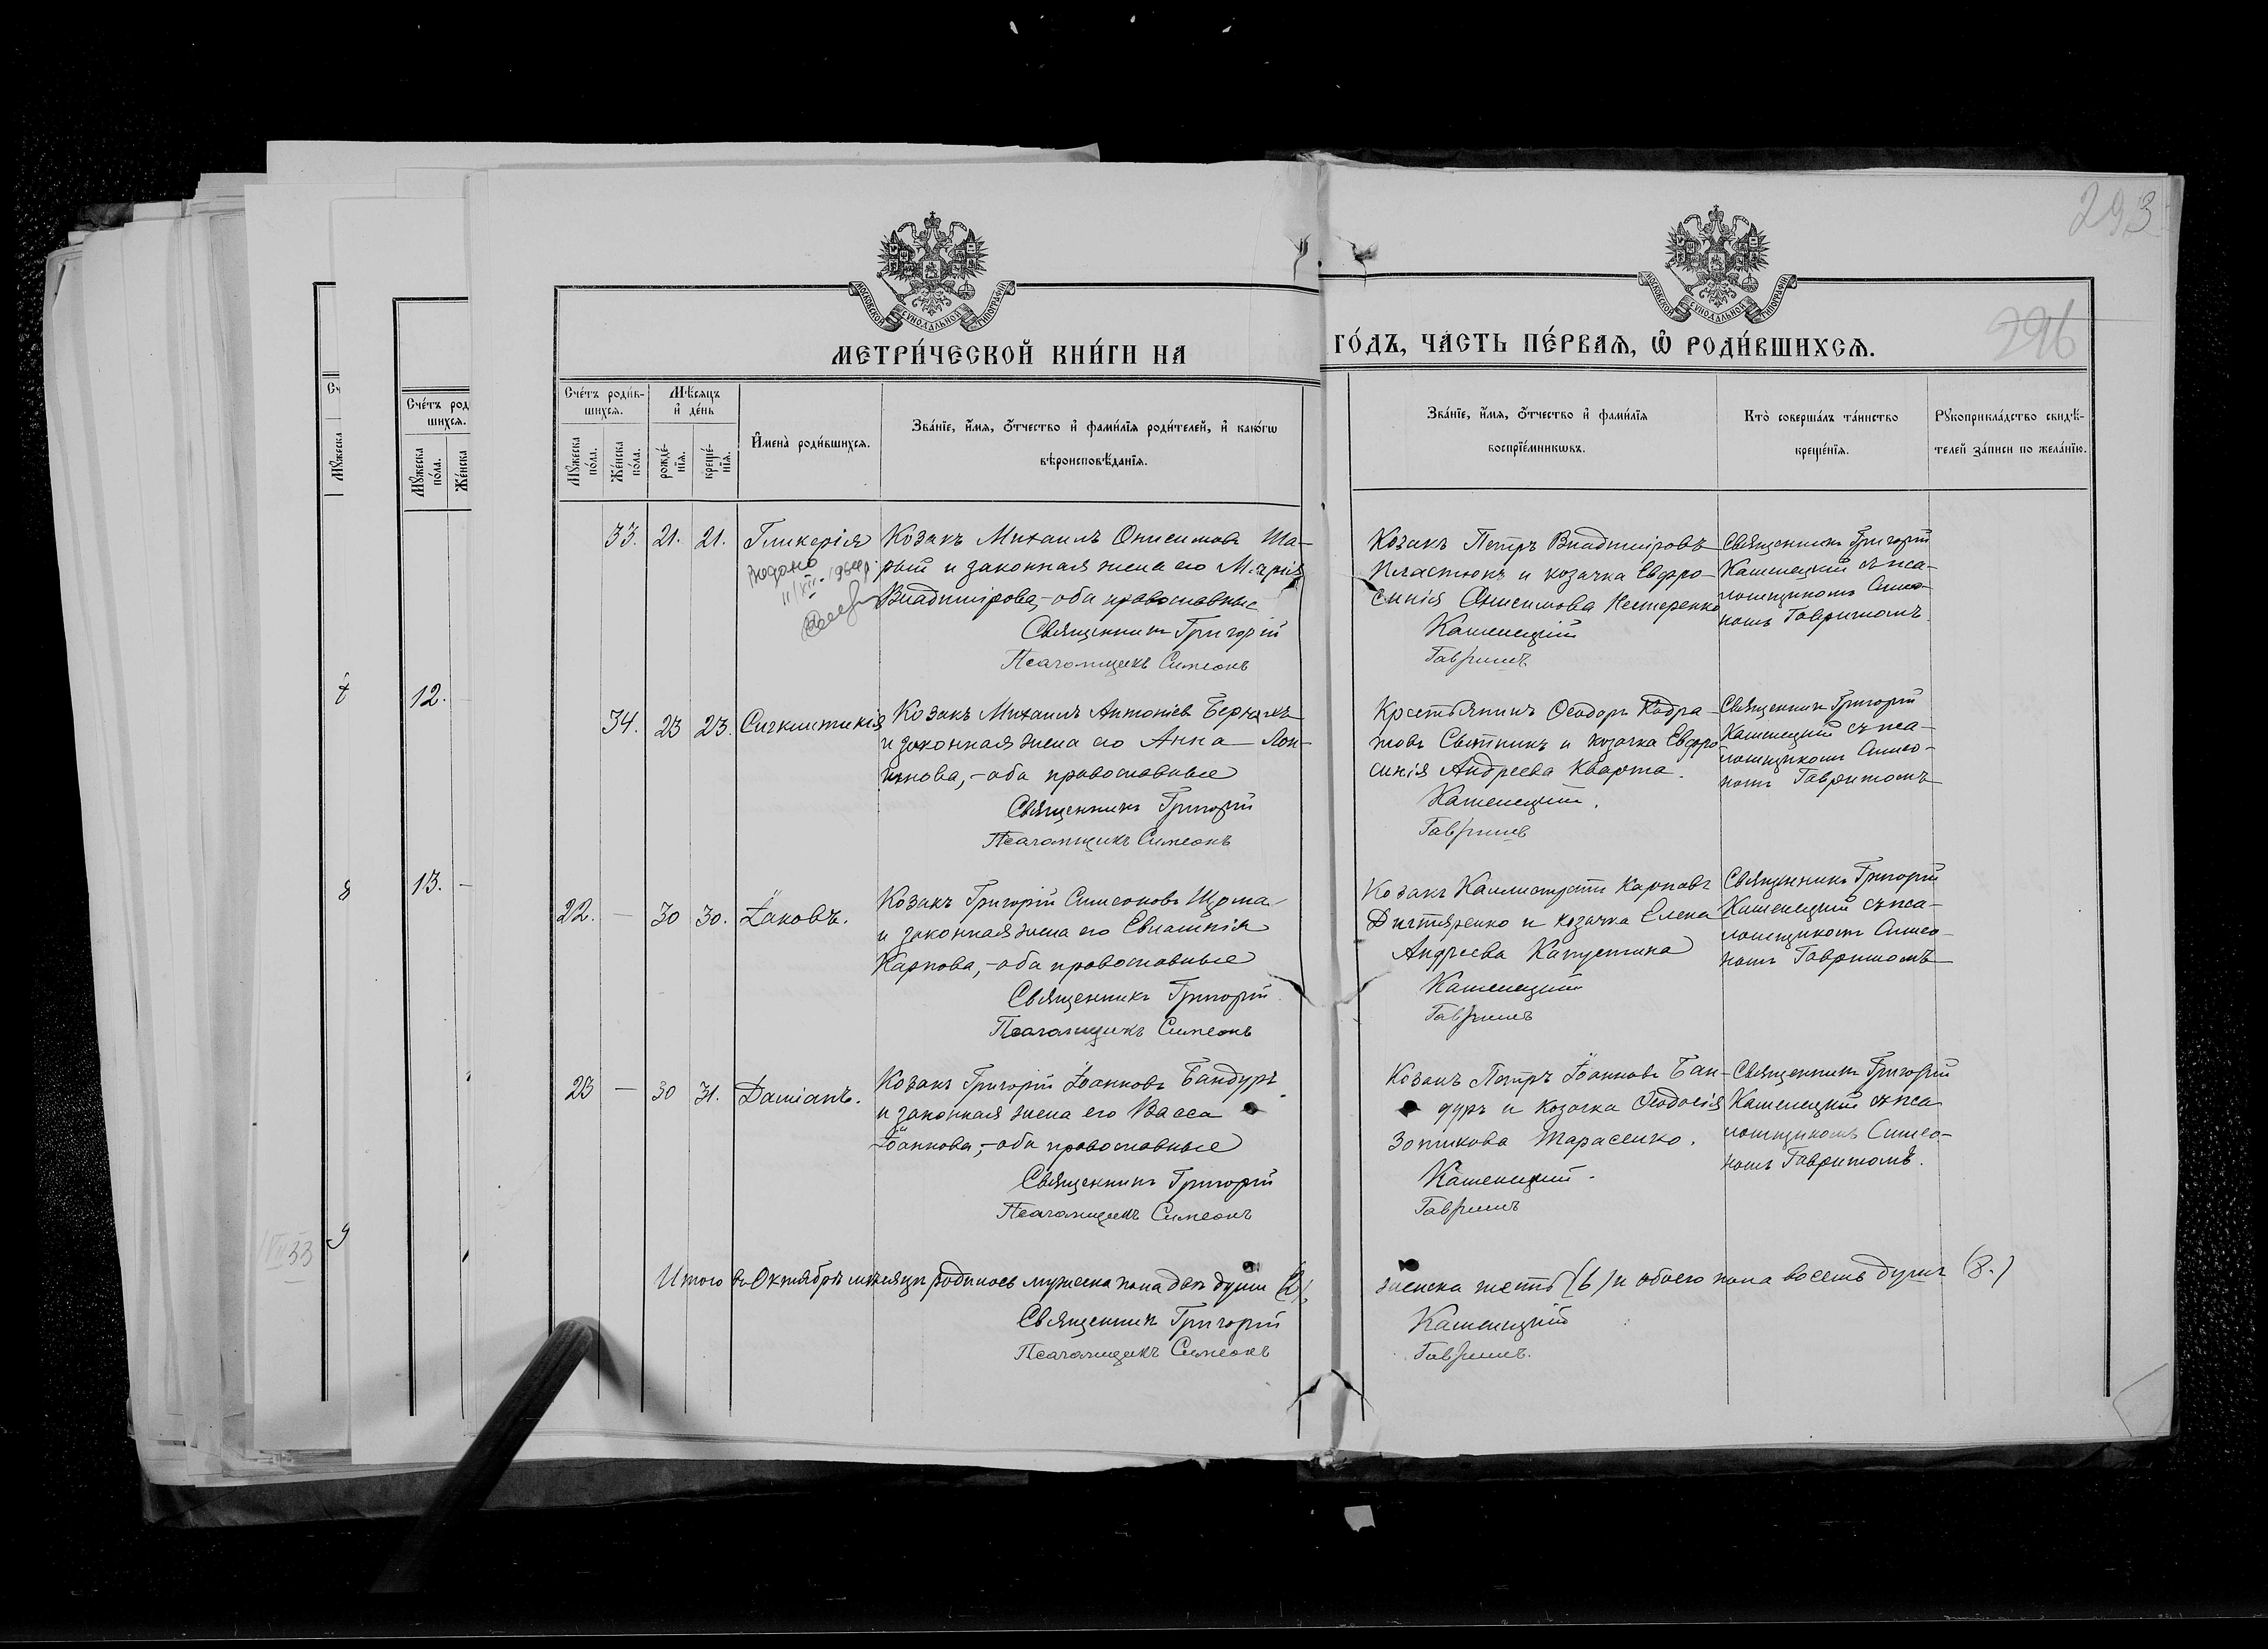 293
296
МОСКОВСКОЙ СѴНОДАЛЬНОЙ ТИПОГРАФІИ
МОСКОВСКОЙ СѴНОДАЛЬНОЙ ТИПОГРАФІИ
МЕТРИ́ЧЕСКОЙ КНИ́ГИ НА
ГО́ДЪ, ЧА́СТЬ ПЕ́РВАѦ, Ѡ҆ РОДИ́ВШИХСѦ.
Сче́тъ роди́в-
шихсѧ.
Мꙋ́жеска по́ла.
Же́нска по́ла.
Мѣ́сяцъ
и҆ де́нь
рожде́-
нїѧ.
креще́-
нїѧ.
И҆мена̀ роди́вшихсѧ.
Зва́нїе, и҆́мѧ, ѻ҆́тчество и҆ фами́лїѧ роди́телей, и҆ како́гѡ
вѣроисповѣ́данїѧ.
Зва́нїе, и҆́мѧ, ѻ҆́тчество и҆ фами́лїѧ
воспрїе́мникѡвъ.
Кто̀ соверша́лъ та́инство
креще́нїѧ.
Рꙋкоприкла́дство свидѣ́-
телей за́писи по жела́нїю.
Сче́тъ род
шихсѧ.
Мꙋ́жеска
по́ла.
Же́нска
12.
13.
8
9
33
33. 21. 21. Гликерія
11/XII-1964р.
Козакъ Михаилъ Онисимовъ Ша-
рый и законная жена его Марія
Владимірова,- оба православные
Священникъ Григорій
Псаломщикъ Симеонъ
Козакъ Петръ Владиміровъ
Пластюкъ и козачка Евфро-
синія Онисимова Нестеренко
Каменецкій
Гавришъ
Священникъ Григорій
Каменецкій съ пса-
ломщикомъ Симео-
номъ Гавришомъ.
34. 23 23. Синклитикія
Козакъ Михаилъ Антоніевъ
и законная жена его Анна Лон-
гинова,- оба православные
Священникъ Григорій
Псаломщикъ Симеонъ
Крестьянинъ Ѳеодоръ Кодра-
товъ Свитникъ и козачка Евфро-
синія Андреева Кварта.
Каменецкій.
Гавришъ
Священникъ Григорій
Каменецкій съ пса-
ломщикомъ Симео-
номъ Гавришомъ
22. — 30 30. Іаковъ.
Козакъ Григорій Симеоновъ Щома
и законная жена его Евлампія
Карпова,- оба православные
Священникъ Григорій
Псаломщикъ Симеонъ
Козакъ Каллистратъ Карповъ
Дигтяренко и козачка Елена
Андреева Капустина
Каменецкій
Гавришъ
Священникъ Григорій
Каменецкій съ пса-
ломщикомъ Симео-
номъ Гавришомъ
23 — 30 31. Даміанъ.
Козакъ Григорій Іоанновъ Бандуръ
и законная жена его Васса
Іоаннова,- оба православные
Священникъ Григорій
Псаломщикъ Симеонъ
Козакъ Петръ Іоанновъ Бан-
дуръ и козачка Ѳеодосія
Зотикова Тарасенко.
Каменецкій.
Гавришъ
Священникъ Григорій
Каменецкій съ пса
ломщикомъ Симео-
номъ Гавришомъ.
Итого въ Октябрѣ мѣсяцѣ родилось мужеска пола двѣ души (2),
женска шесть (6) и обоего пола восемь душъ (8.)
Священникъ Григорій
Псаломщикъ Симеонъ
Каменецкій
Гавришъ.